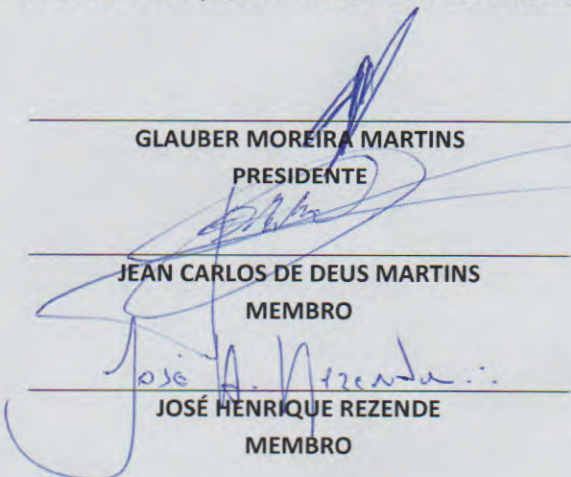 GLAUBER MOREIRA MARTINS
PRESIDENTE
JEAN CARLOS DE DEUS MARTINS
MEMBRO
José H. Rezende
JOSÉ HENRIQUE REZENDE
MEMBRO